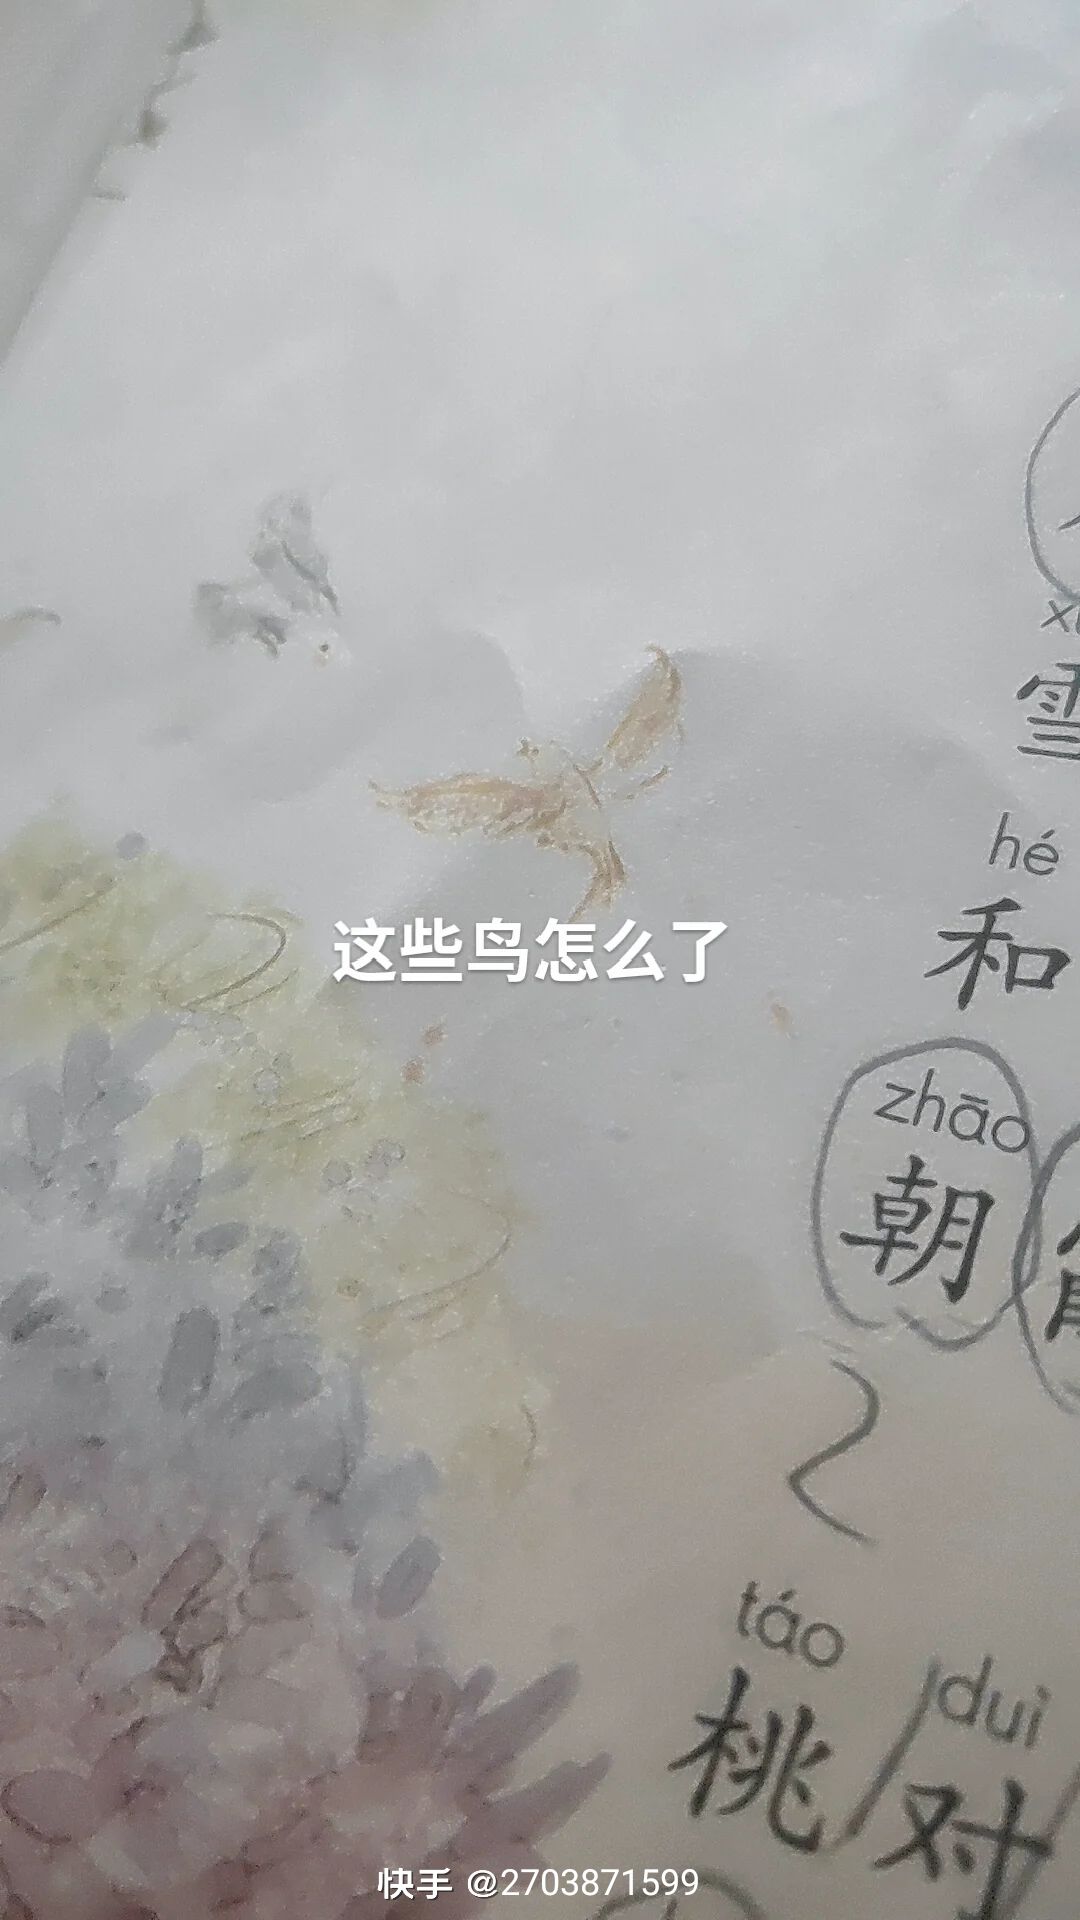 雪
hé
和
这些鸟怎么了
zhāo
朝
táo duì
桃 对
快手 @2703871599